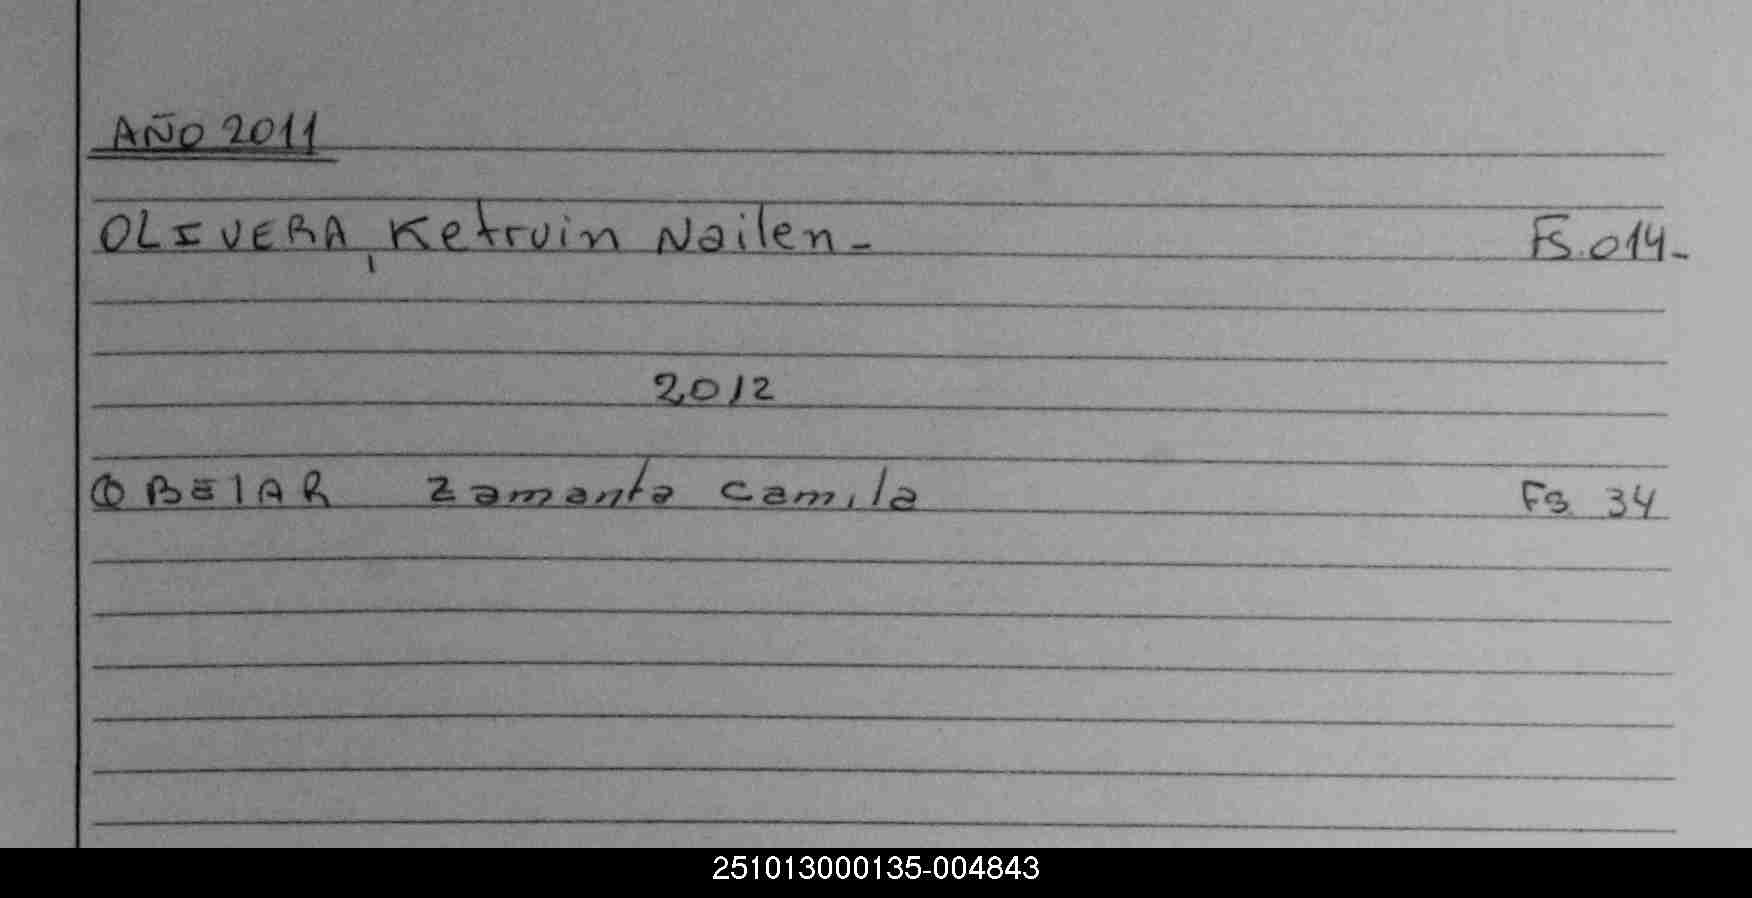 AÑO 2011
OLIVERA, Ketruin Nailen - Fs. 014-
2012
OBEIAR Zamanta Camila Fs. 34
251013000135-004843